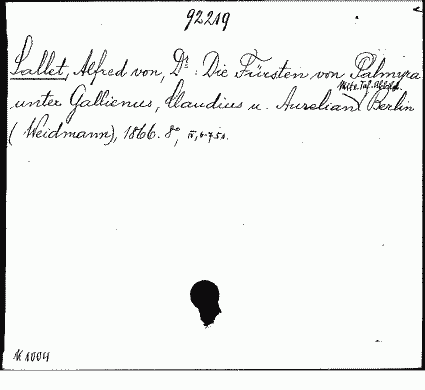 92219
Sallet, Alfred von, Dr. Die Fürsten von Palmyra
unter Gallienus, Claudius u. Aurelian. Berlin
(Weidmann), 1866. 8°, IV, 6-75 S.
K 1004